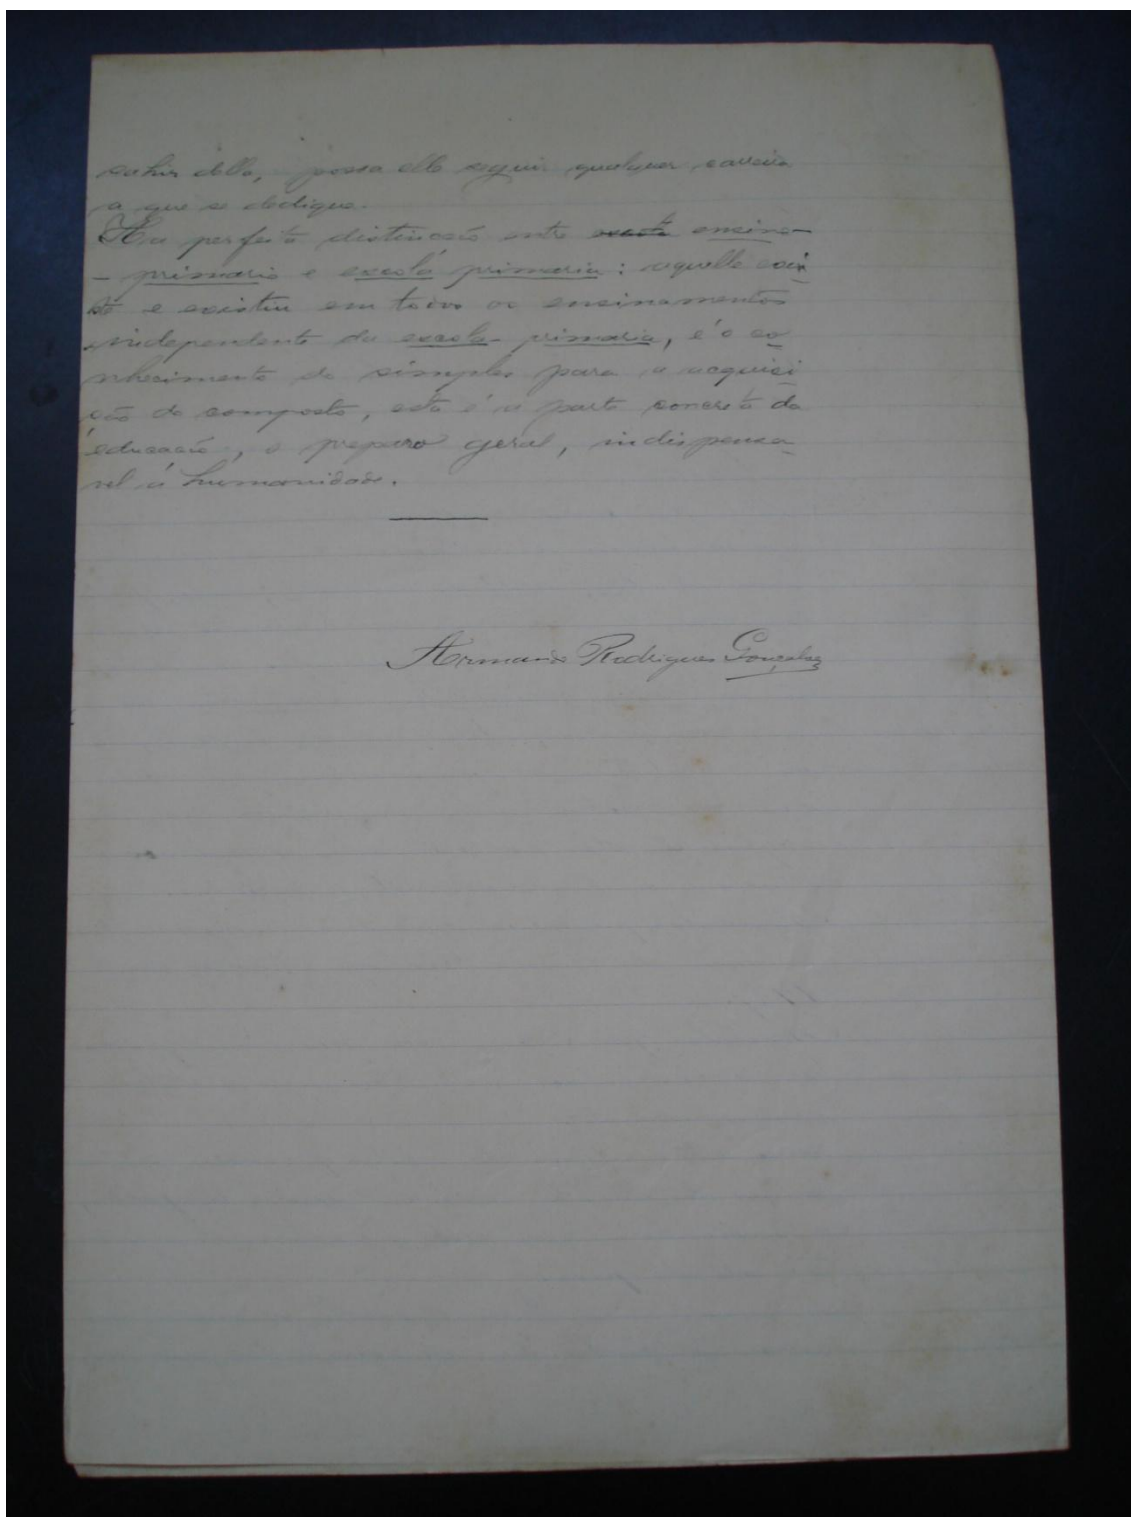 sahir della, possa elle seguir qualquer carreira
a que se dedique.
Ha perfeita distincção entre ensino-
- primario e escola primaria: aquelle exis
te e existiu em todos os ensinamentos
independente da escola primaria, é o co
nhecimento do simples para a acquisi
ção do composto, esta é a parte concreta da
educação, o preparo geral, indispensa
vel á humanidade.
Armando Rodrigues Gonçalves